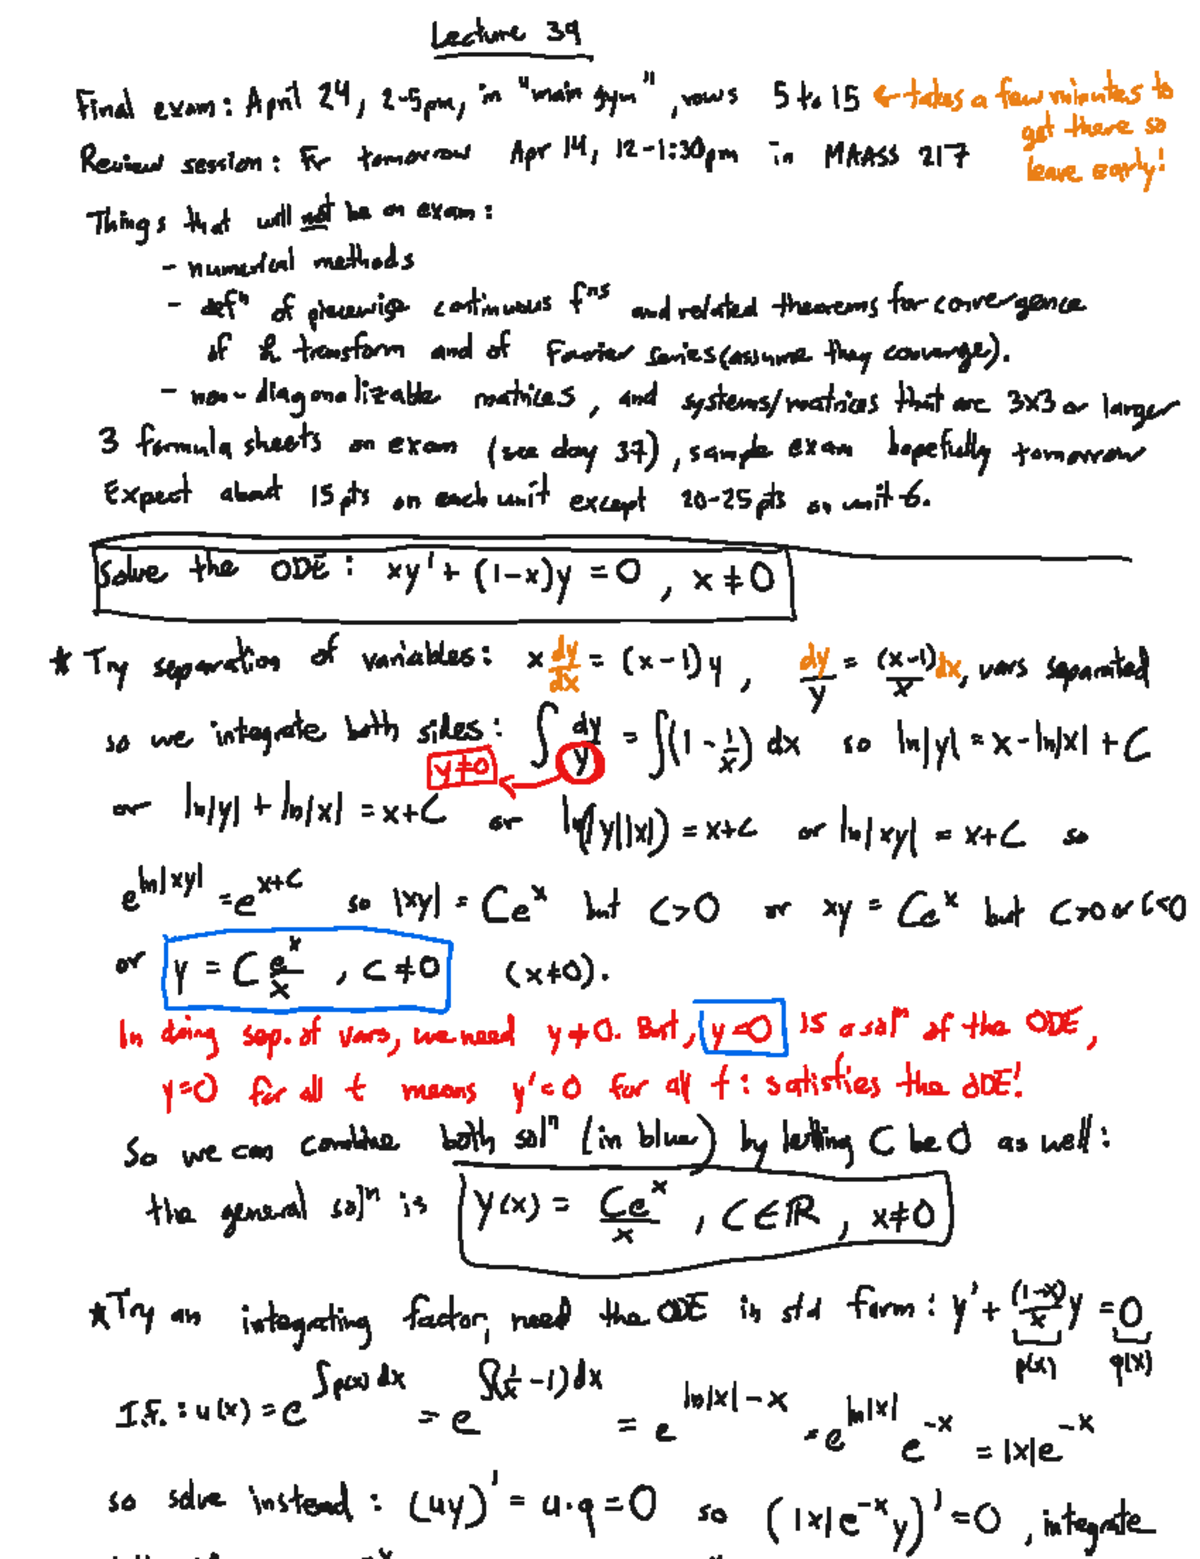 Lecture 39
Final exam: April 24, 2-5pm, in "main gym", rows 5 to 15 ← takes a few minutes to
get there so
leave early!
Review session: Fr tomorrow Apr 14, 12-1:30pm in MAASS 217
Things that will not be on exam:
- numerical methods
- defⁿ of piecewise continuous fⁿˢ and related theorems for convergence
of ℒ transform and of Fourier series (assume they converge).
- non-diagonalizable matrices, and systems/matrices that are 3x3 or larger
3 formula sheets on exam (see day 37), sample exam hopefully tomorrow
Expect about 15 pts on each unit except 20-25 pts on unit 6.
Solve the ODE: xy' + (1-x)y = 0, x ≠ 0
* Try separation of variables: x dy/dx = (x-1)y, dy/y = (x-1)/x dx, vars separated
so we integrate both sides: ∫ dy/y = ∫(1 - 1/x) dx so ln|y| = x - ln|x| + C
y≠0
or ln|y| + ln|x| = x+C or ln(|y||x|) = x+C or ln|xy| = x+C so
e^{ln|xy|} = e^{x+C} so |xy| = Ce^x but C>0 or xy = Ce^x but C>0 or C<0
or y = C e^x/x, C≠0 (x≠0).
In doing sep. of vars, we need y≠0. But, y=0 is a solⁿ of the ODE,
y=0 for all t means y'=0 for all t: satisfies the ODE!
So we can combine both solⁿ (in blue) by letting C be 0 as well:
the general solⁿ is y(x) = Ce^x/x, C∈ℝ, x≠0
* Try an integrating factor, need the ODE in std form: y' + (1-x)/x y = 0
p(x) q(x)
I.f.: u(x) = e^{∫p(x)dx} = e^{∫(1/x - 1)dx} = e^{ln|x| - x} = e^{ln|x|} e^{-x} = |x|e^{-x}
so solve instead: (uy)' = u·q = 0 so (|x|e^{-x}y)' = 0, integrate